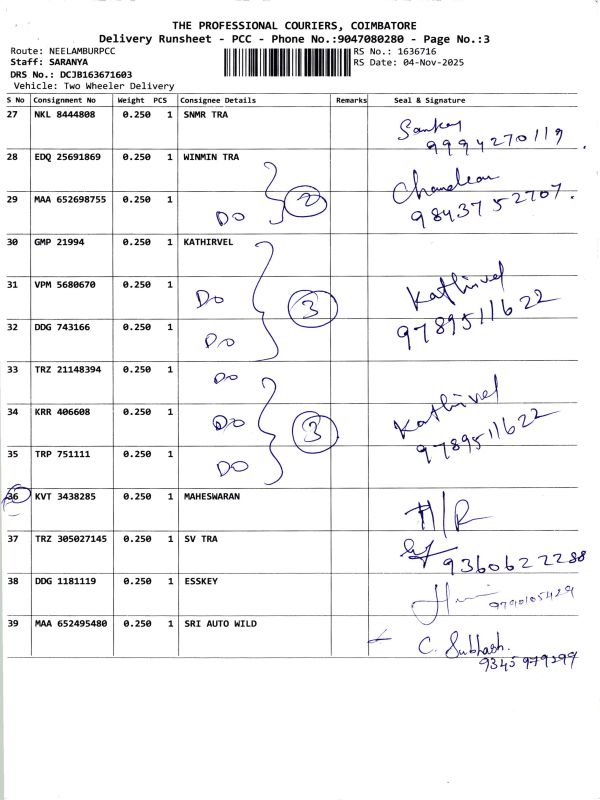 THE PROFESSIONAL COURIERS, COIMBATORE
Delivery Runsheet - PCC - Phone No.:9047080280 - Page No.:3
Route: NEELAMBURPCC RS No.: 1636716
Staff: SARANYA RS Date: 04-Nov-2025
DRS No.: DCJB163671603
Vehicle: Two Wheeler Delivery
S No Consignment No Weight PCS Consignee Details Remarks Seal & Signature
27 NKL 8444808 0.250 1 SNMR TRA
Sankar
9994270119
28 EDQ 25691869 0.250 1 WINMIN TRA
29 MAA 652698755 0.250 1
DO 2
9843752707.
30 GMP 21994 0.250 1 KATHIRVEL
31 VPM 5680670 0.250 1
DO 3 Kathirvel
9789511622
32 DDG 743166 0.250 1
DO
33 TRZ 21148394 0.250 1
DO
34 KRR 406608 0.250 1
DO 3 Kathirvel
9789511622
35 TRP 751111 0.250 1
DO
36 KVT 3438285 0.250 1 MAHESWARAN
H/R
37 TRZ 305027145 0.250 1 SV TRA
9360622288
38 DDG 1181119 0.250 1 ESSKEY
9790105429
39 MAA 652495480 0.250 1 SRI AUTO WILD
C. Subhash.
9345979299